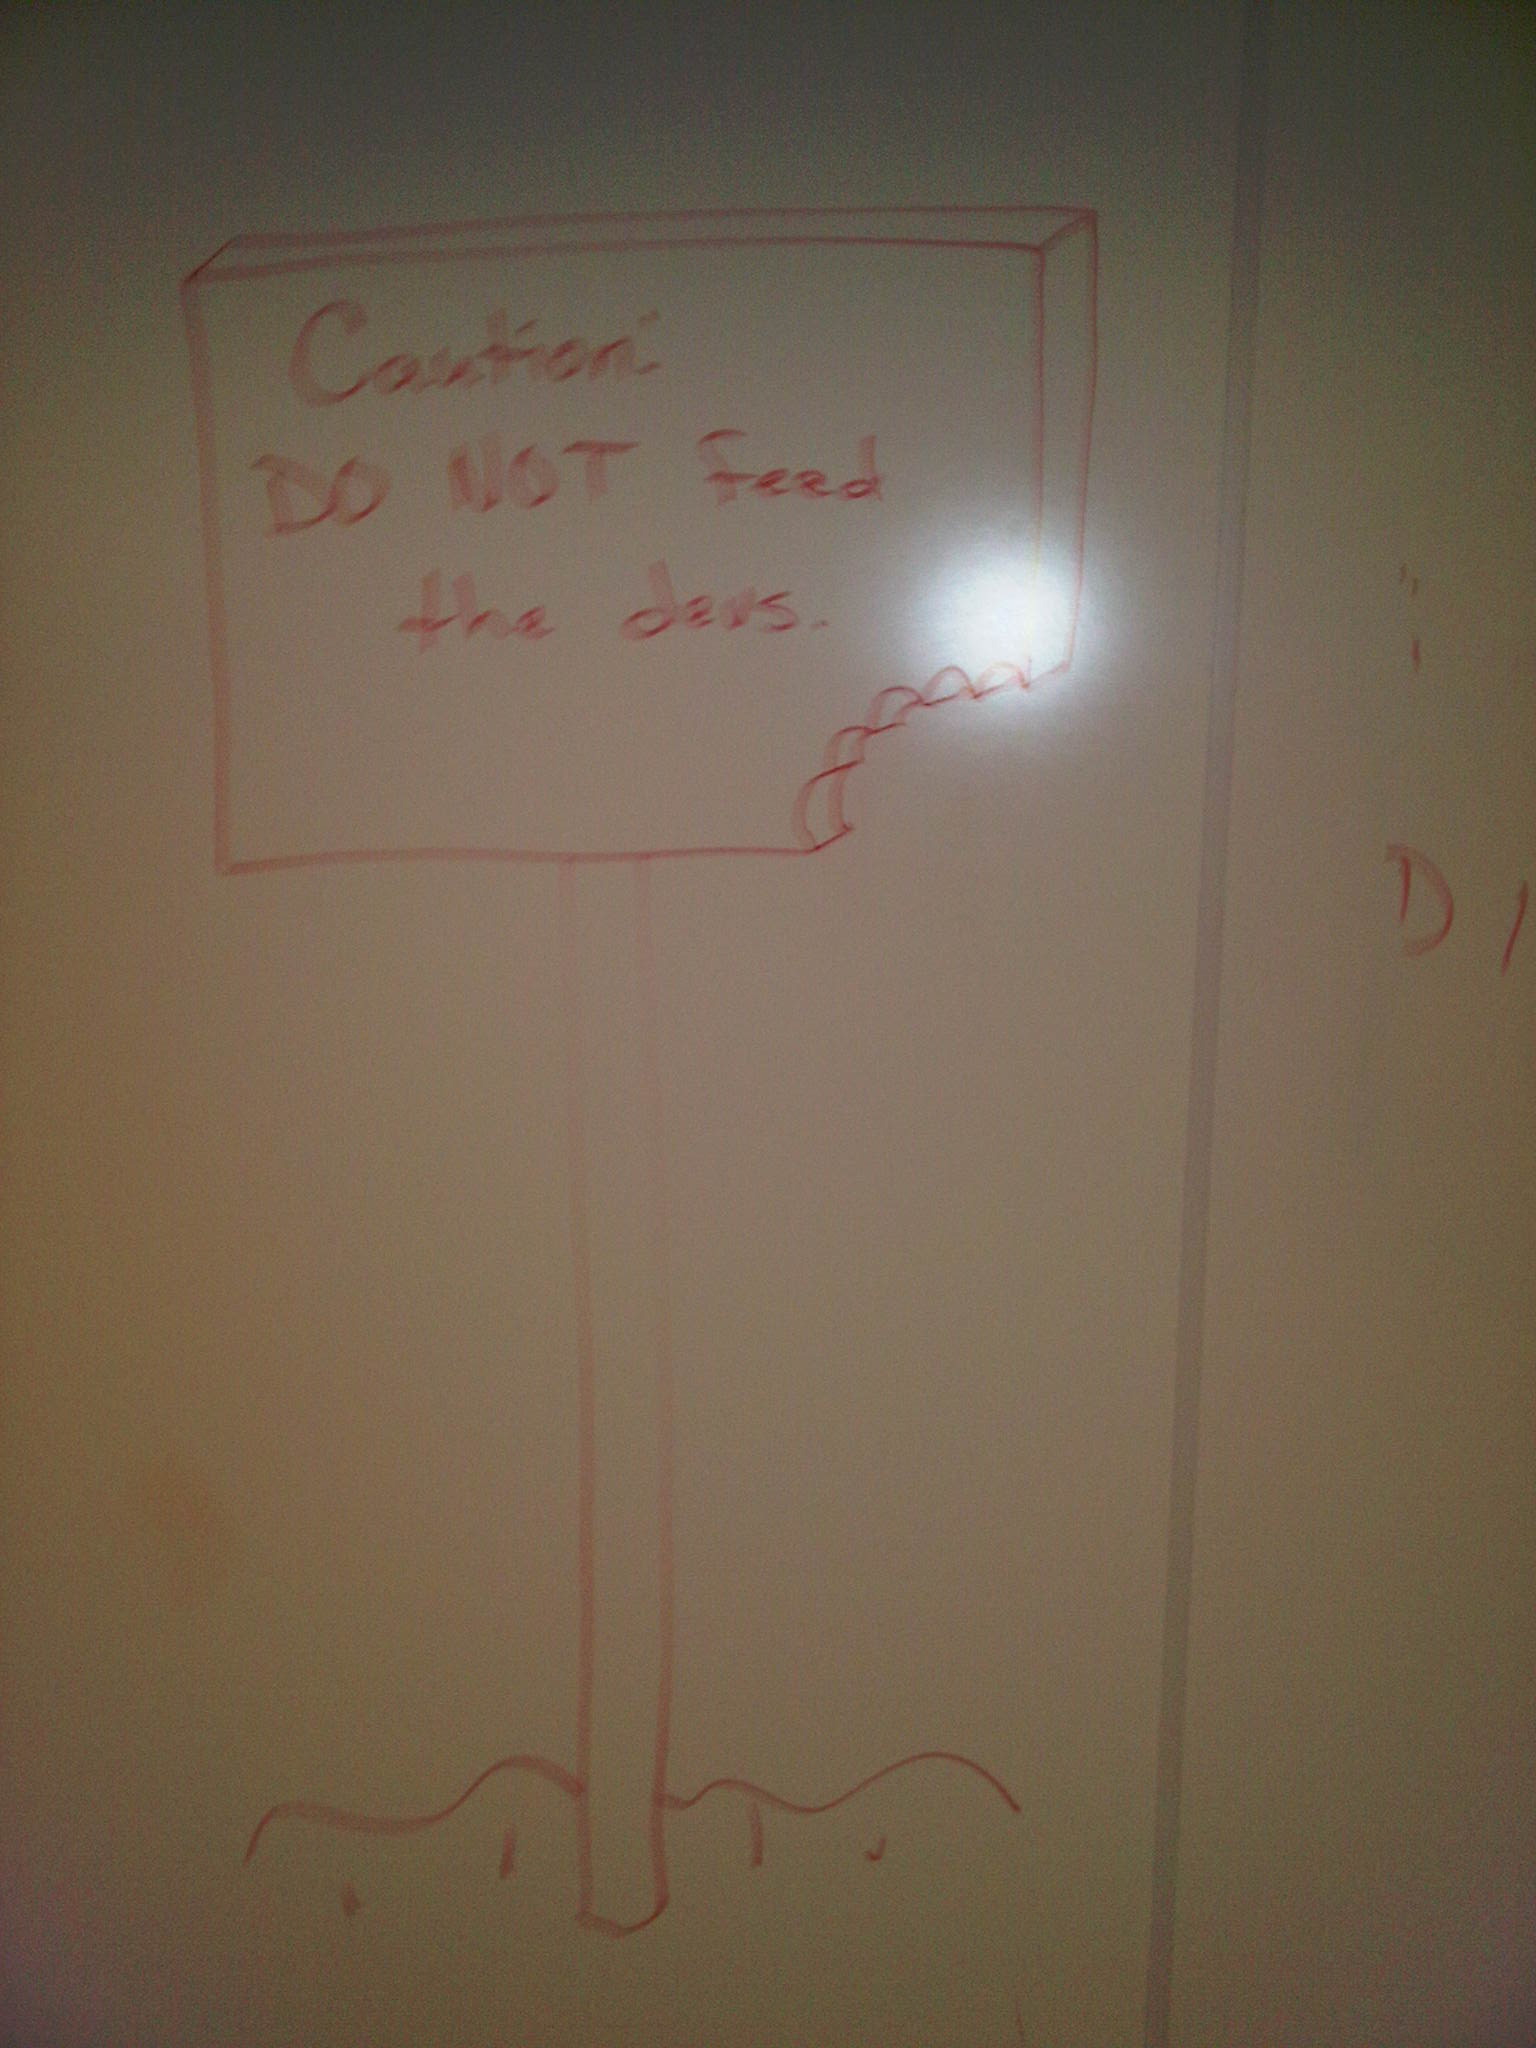 Caution:
DO NOT feed
the devs.
D